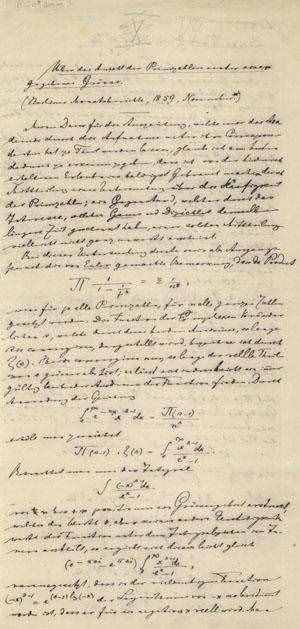 Ueber die Anzahl der Primzahlen unter einer
gegebenen Grösse.
(Berliner Monatsberichte, 1859, November)
Meinen Dank für die Auszeichnung, welche mir die Aka-
demie durch die Aufnahme unter ihre Correspon-
denten hat zu Theil werden lassen, glaube ich am besten
dadurch zu erkennen zu geben, dass ich von der hierdurch
erhaltenen Erlaubniss baldigst Gebrauch mache durch
Mittheilung einer Untersuchung über die Häufigkeit
der Primzahlen; ein Gegenstand, welcher durch das
Interesse, welches Gauss und Dirichlet demselben
längere Zeit geschenkt haben, einer solchen Mittheilung
vielleicht nicht ganz unwerth erscheint.
Bei dieser Untersuchung diente mir als Ausgangs-
punkt die von Euler gemachte Bemerkung, dass das Product
∏ 1/(1 − 1/p^s) = Σ 1/n^s,
wenn für p alle Primzahlen, für n alle ganzen Zahlen
gesetzt werden. Die Function der complexen Veränder-
lichen s, welche durch diese beiden Ausdrücke, so lange
sie convergiren, dargestellt wird, bezeichne ich durch
ζ(s). Beide convergiren nur, so lange der reelle Theil
von s grösser als 1 ist; es lässt sich indess leicht ein immer
gültig bleibender Ausdruck der Function finden. Durch
Anwendung der Gleichung
∫ e^(−nx) x^(s−1) dx = Π(s−1)/n^s
erhält man zunächst
Π(s−1) ζ(s) = ∫ x^(s−1) dx/(e^x−1).
Betrachtet man nun das Integral
∫ (−x)^(s−1) dx/(e^x−1)
(e^(−πsi) − e^(πsi)) ∫ x^(s−1) dx/(e^x−1),
vorausgesetzt, dass in der vieldeutigen Function
(−x)^(s−1) = e^((s−1) lg(−x)) der Logarithmus von −x so bestimmt
worden ist, dass er für ein negatives x reell wird.